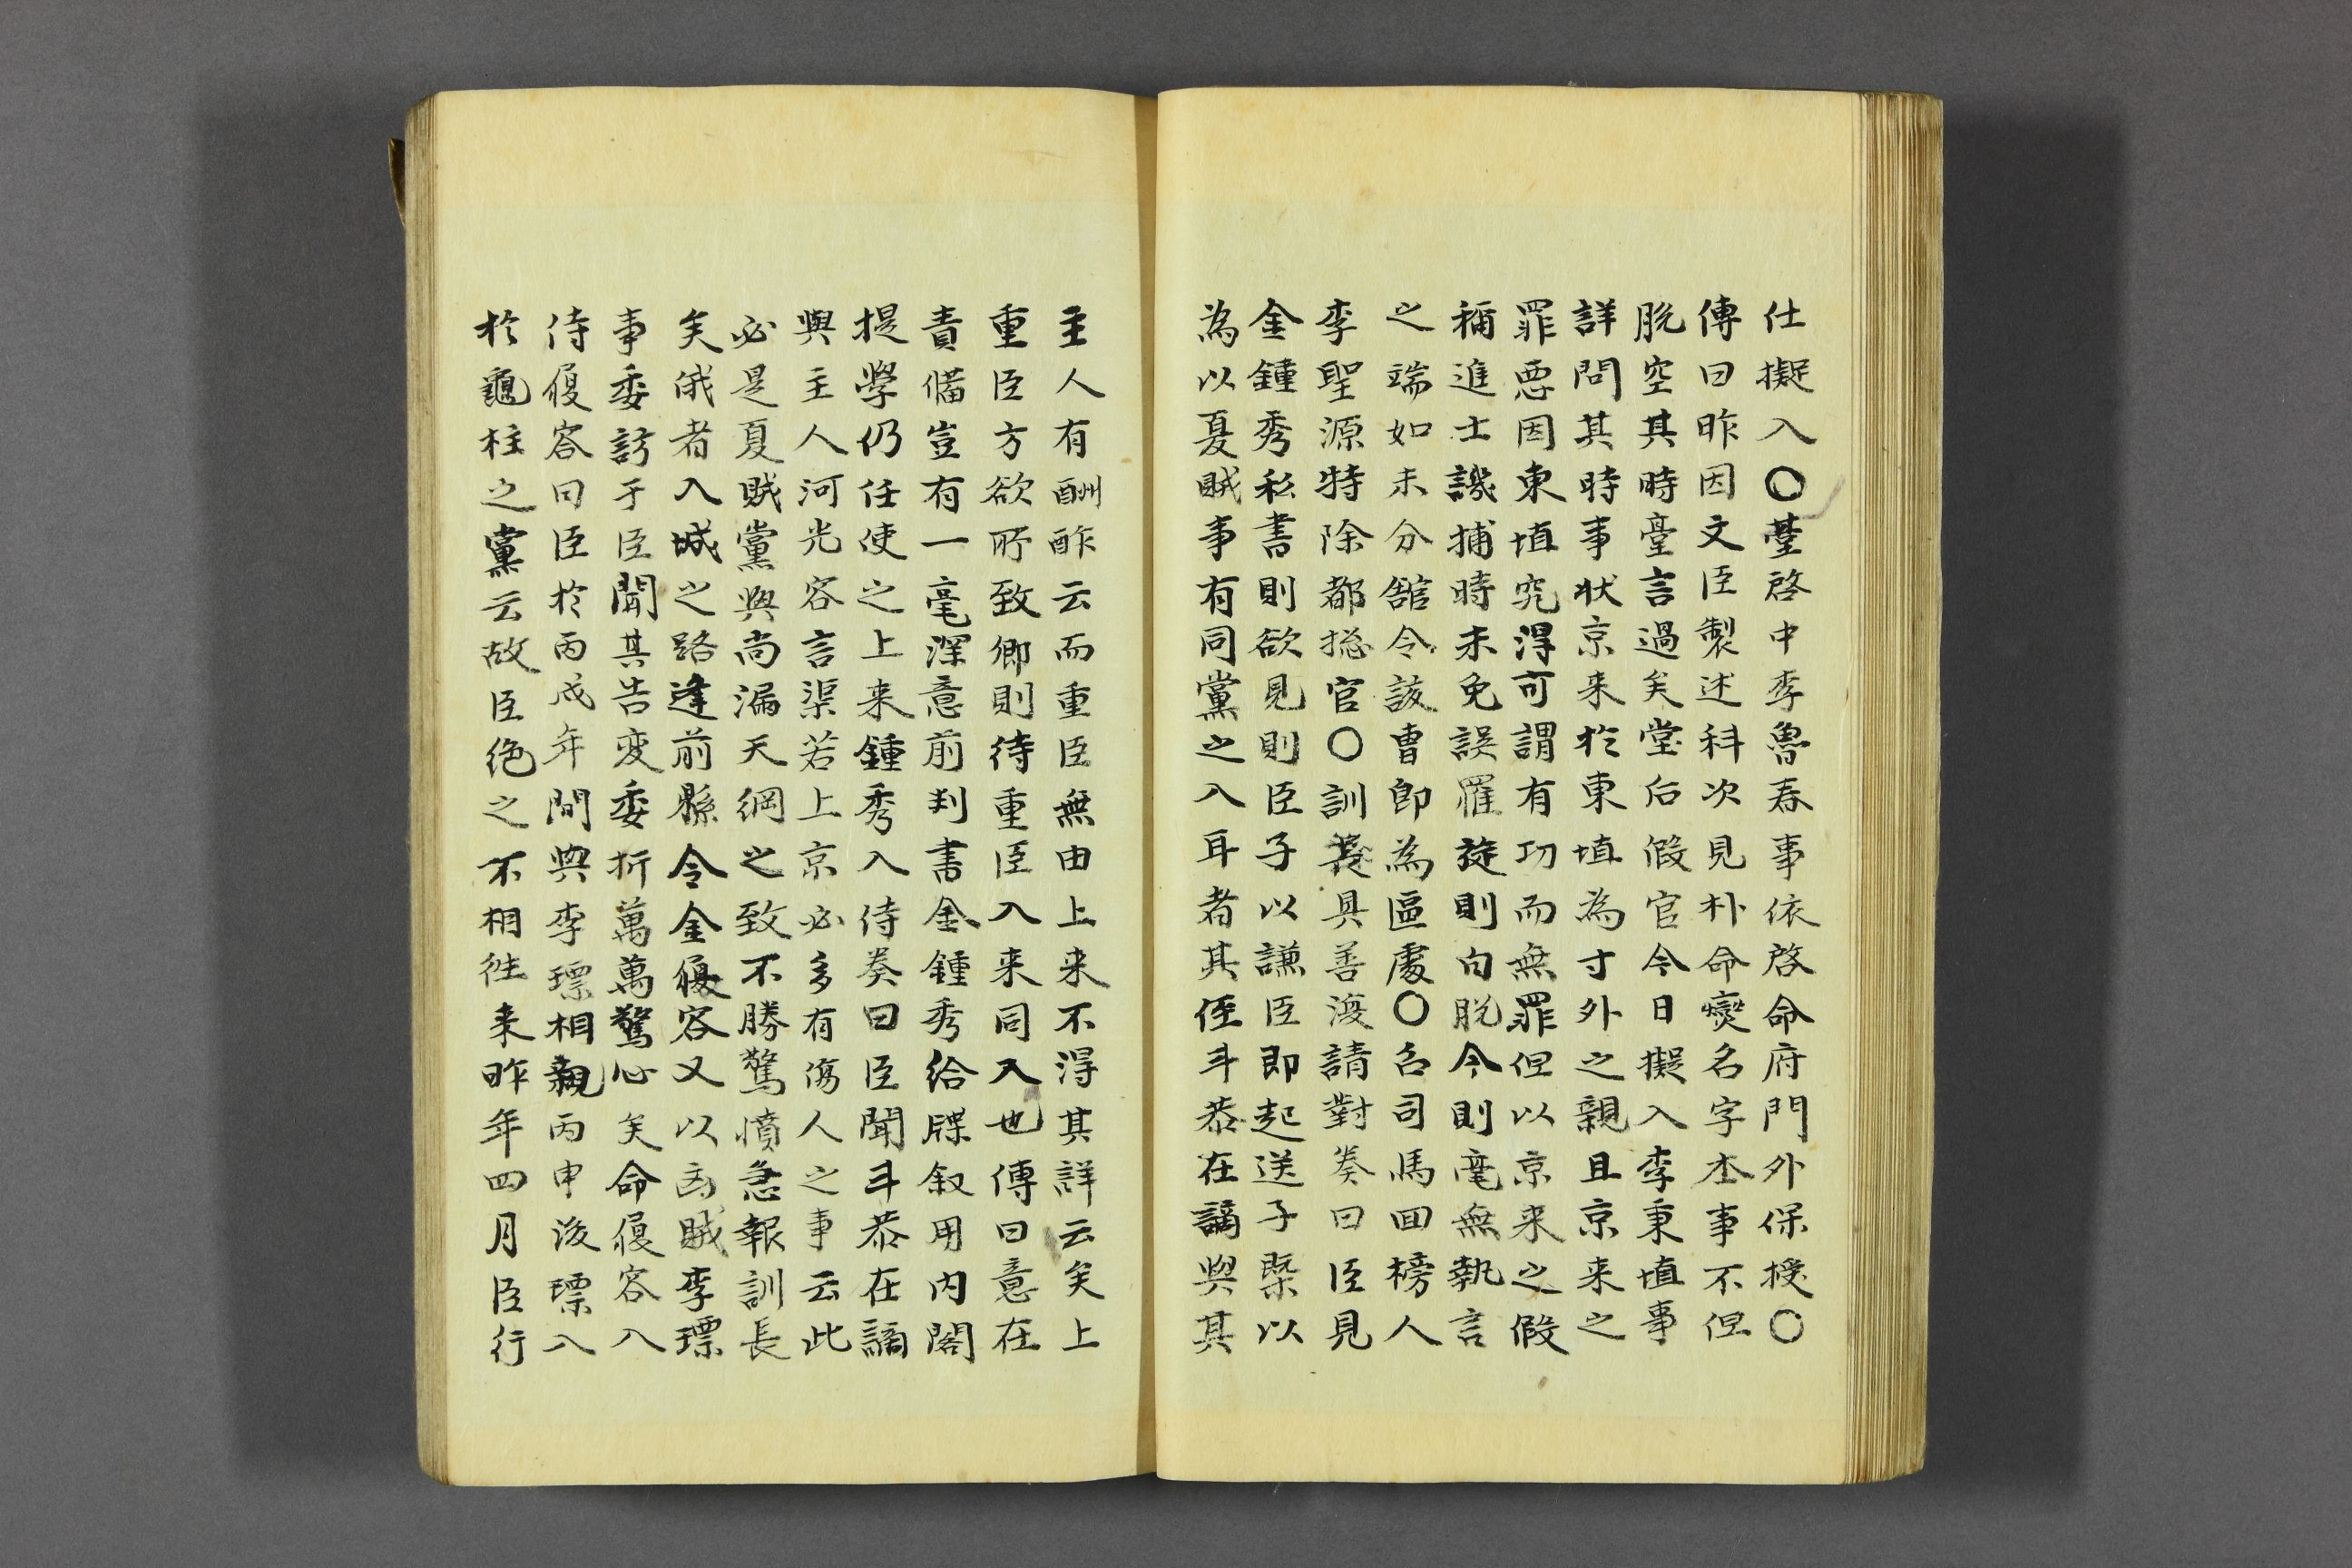 仕擬入〇䑓啓中李魯春事依啓命府門外保授〇
傳曰昨因文臣製述科次見朴命燮名字本事不但
脫空其時䑓言過矣堂后假官今日擬入李東埴事
詳問其時事狀京来於東埴為寸外之親且京来之
罪惡因東埴究得可謂有功而無罪但以京来之假
稱進士譏捕時未免誤罹旋則白脫今則毫無執言
之端如未分舘令該曹即為區處〇召司馬回榜人
李聖源特除都摠官〇訓養具善復請對奏曰臣見
金鍾秀私書則欲見則臣子以謙臣即起送子槩以
為以憂賊事有同黨之入耳者其侄斗恭在謫與其
主人有酬酢云而重臣無由上来不得其詳云矣上
重臣方欲所致卿則待重臣入来同入也傳曰意在
責備豈有一毫深意前判書金鍾秀給牒叙用内閣
提學仍任使之上来鍾秀入侍奏曰臣聞斗恭在謫
與主人河光容言渠若上京必多有傷人之事云此
必是夏賊黨與尚漏天網之致不勝驚憤急報訓長
矣俄者入城之路逢前縣令金履容又以凶賊李瓢
事委訪于臣聞其告变委折萬萬驚心矣命履容入
侍履容曰臣於丙戌年間與李瓢相親丙申後瓢入
於龜柱之黨云故臣絶之不相徃来昨年四月臣行